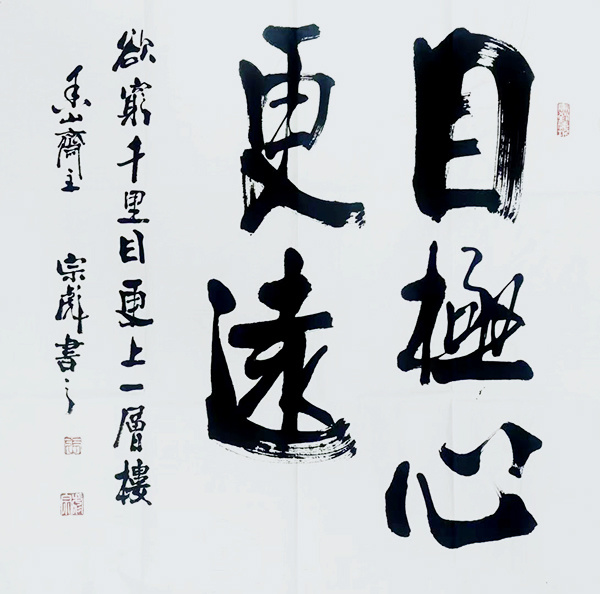 目極心
更遠
欲窮千里目更上一層樓
香山齋主 宗彪書之